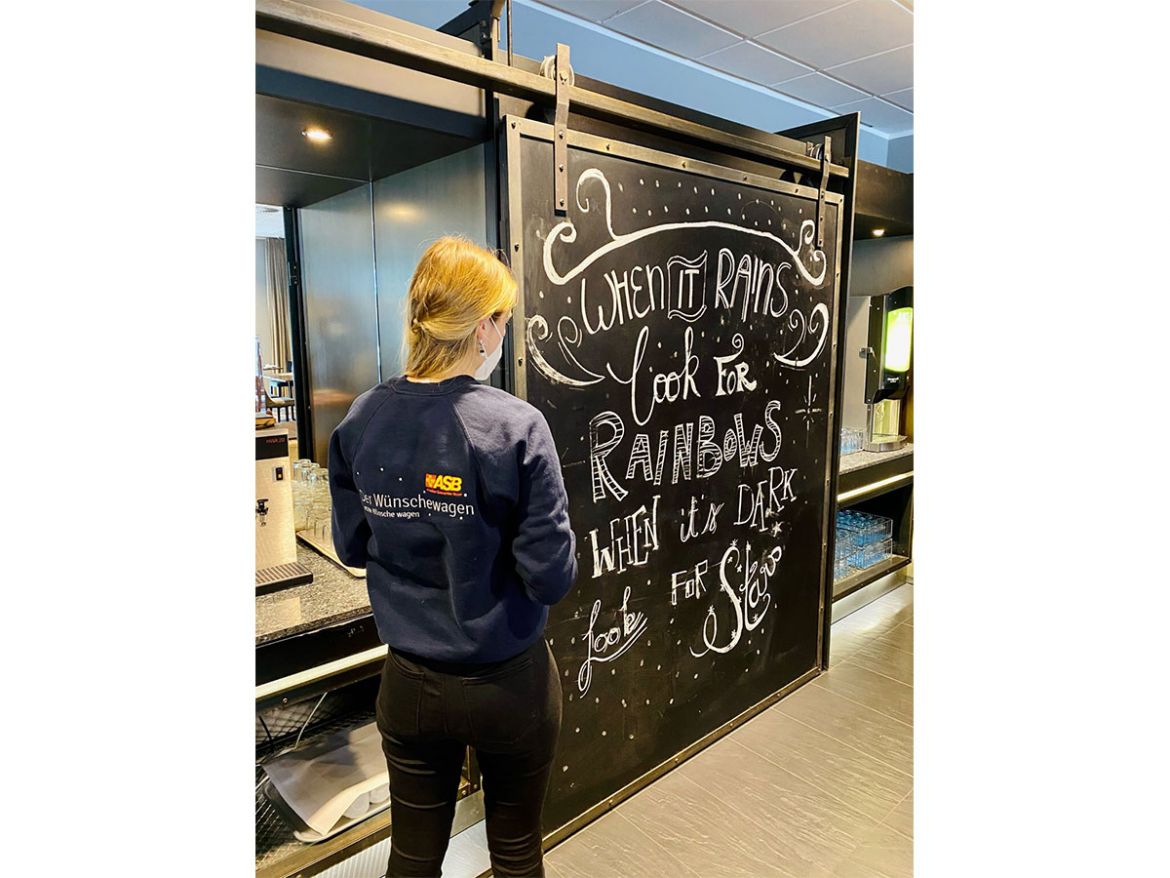 WHEN IT RAINS
look FOR
RAINBOWS
WHEN it's DARK
look FOR Stars
ASB
Der Wünschewagen
Wünsche wagen